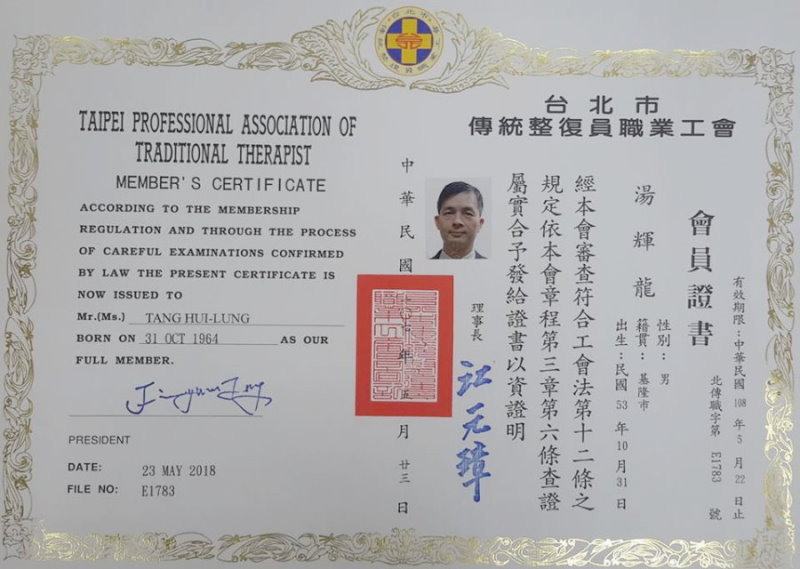 TAIPEI PROFESSIONAL ASSOCIATION OF
TRADITIONAL THERAPIST
MEMBER'S CERTIFICATE
ACCORDING TO THE MEMBERSHIP
REGULATION AND THROUGH THE PROCESS
OF CAREFUL EXAMINATIONS CONFIRMED
BY LAW THE PRESENT CERTIFICATE IS
NOW ISSUED TO
Mr.(Ms.) TANG HUI-LUNG
BORN ON 31 OCT 1964 AS OUR
FULL MEMBER.
PRESIDENT
DATE: 23 MAY 2018
FILE NO: E1783
台北市
傳統整復員職業工會
有效期限:中華民國 108 年 5 月 22 日止
北傳職字第 E1783 號
會員證書
性別:男
籍貫:基隆市
出生:民國 53 年 10 月 31 日
湯輝龍
經本會審查符合工會法第十二條之
規定依本會章程第三章第六條查證
屬實合予發給證書以資證明
理事長 江元璋
中華民國 年 五 月 廿三 日